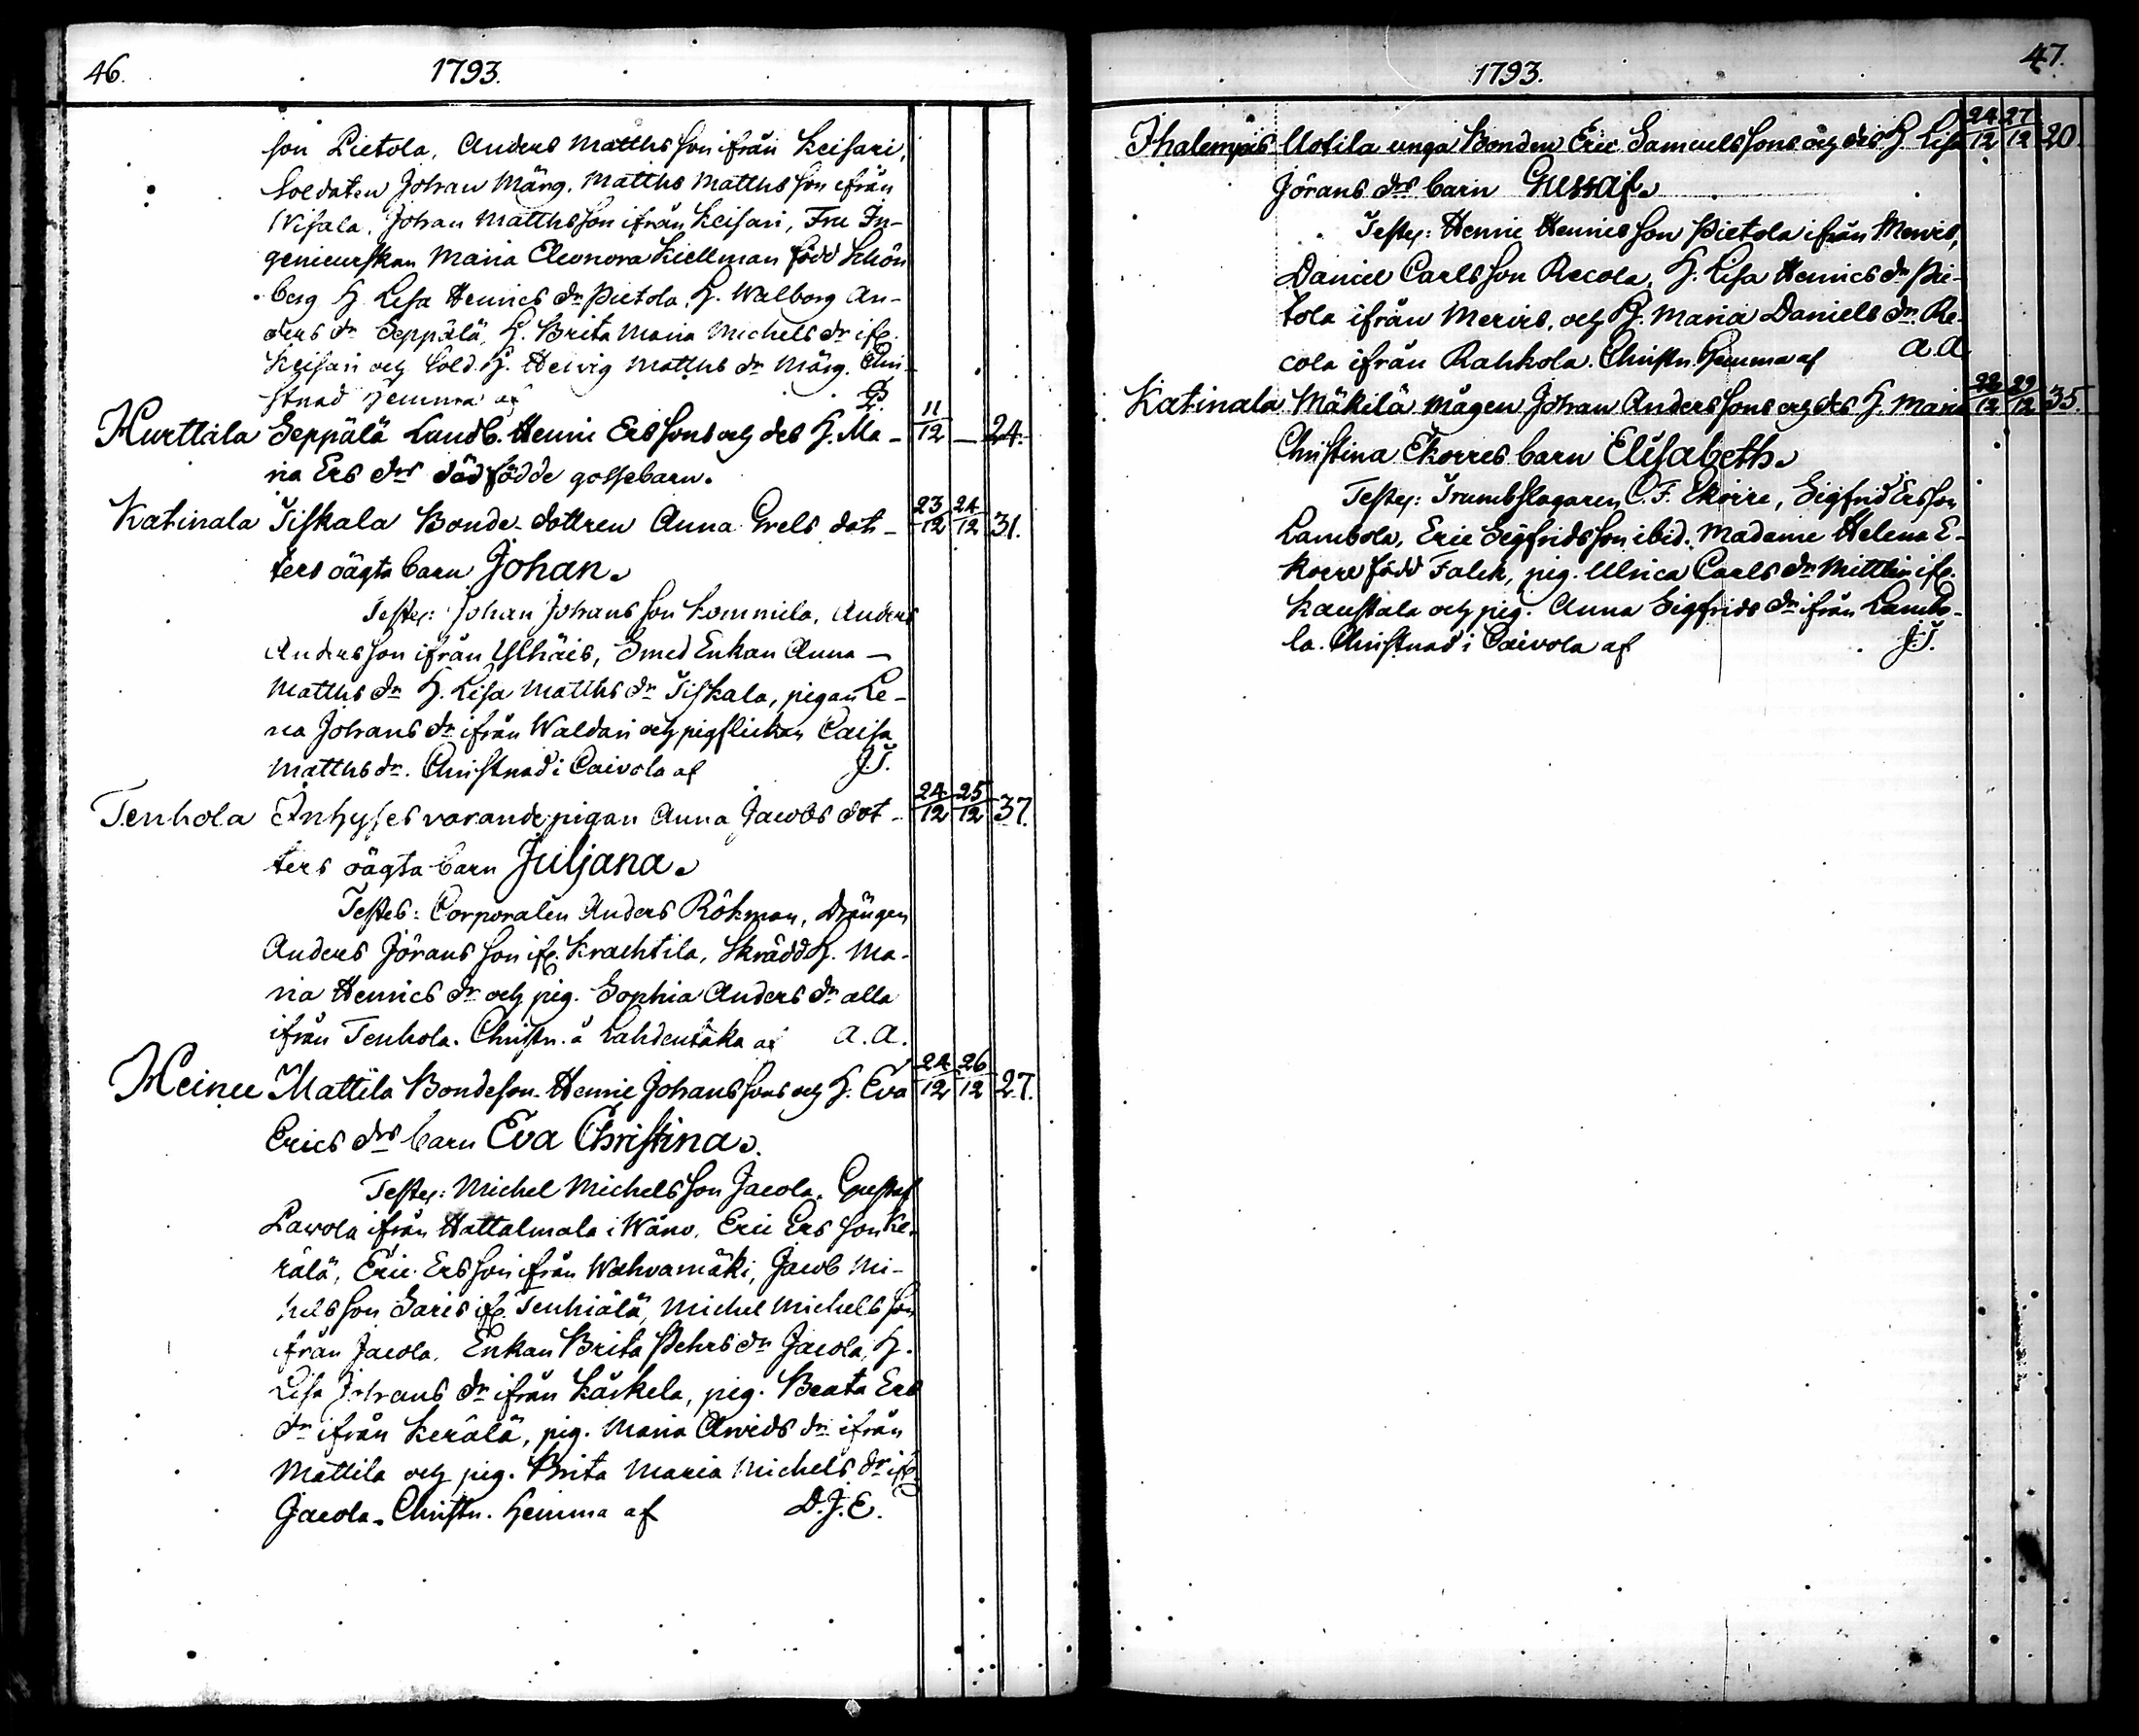 46. 1793.
son Pietola, Anders Matthsson ifrån Keisari,
Soldaten Johan Märg. Matths Matthsson ifrån
Nisala, Johan Matthsson ifrån Keisari, Fru In-
genieurskan Maria Eleonora Kiellman född Schön
berg H. Lisa Henrics dr Pietola, H. Walborg An-
ders dr Seppälä, H. Brita Maria Michels dr ifr.
Keisari och Sold. H. Hedvig Matths dr Märg. Chri-
stnad hemma af
Hurttala Seppälä Landb. Henric Erssons och des H. Ma- 11/12 — 24.
ria Ers drs dödfödde gossebarn.
Katinala Tiskala Bonde-dottren Anna Grels dot- 23/12 24/12 31.
ters oägta barn Johan.
Testes: Johan Johansson Kommila, Anders
Andersson ifrån Ylhäis, Smed Enkan Anna
Matths dr H. Lisa Matths dr Tiskala, pigan Le-
na Johans dr ifrån Waldari och pigflickan Caisa
Matths dr. Christnad i Caivola af J.T.
Tenhola Inhyses varande pigan Anna Jacobs dot- 24/12 25/12 37.
ters oägta barn Juljana.
Testes: Corporalen Anders Rökman, Drängen
Anders Jöransson ifr. Krachtila, Skrädd. H. Ma-
ria Henrics dr och pig. Sophia Anders dr alla
ifrån Tenhola. Christn. å Lahdentaka af A.A.
Heinu Mattila Bondeson Henric Johanssons och H. Eva 24/12 26/12 27.
Erics drs barn Eva Christina.
Testes: Michel Michelsson Jacola, Gustaf
Lavola ifrån Hattalmala i Wånå, Eric Ersson Ke-
rälä, Eric Ersson ifrån Wahvamäki, Jacob Mi-
helsson Saris ifr. Tenhiälä, Michel Michelsson
ifrån Jacola, Enkan Brita Pehrs dr Jacola, H.
Lisa Johans dr ifrån Käikelä, pig. Beata Ers
dr ifrån Kerälä, pig. Maria Arvids dr ifrån
Mattila och pig. Brita Maria Michels dr ifr.
Jacola. Christn. hemma af D.J.E.
1793. 47.
Ihalempis Uotila unga Bonden Eric Samuelssons och des H. Lisa 24/12 27/12 20
Jörans drs barn Gustaf.
Testes: Henric Henricsson Pietola ifrån Mervis,
Daniel Carlsson Recola, H. Lisa Henrics dr Pie-
tola ifrån Mervis, och H. Maria Daniels dr. Re-
cola ifrån Rahkola. Christn. hemma af A.A.
Katinala Mäkilä mågen Johan Anderssons och des H. Maria 22/12 29/12 35.
Christina Ekorres barn Elisabeth.
Testes: Trumbslagaren C. F. Ekorre, Sigfrid Ersson
Lambola, Eric Sigfridsson ibid. Madame Helena E-
korre född Falck, pig. Ulrica Carls dr Mittler ifr.
Kaustala och pig. Anna Sigfrids dr ifrån Lambo-
la. Christnad i Caivola af J.T.